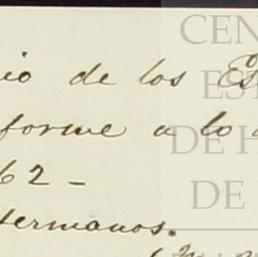 io de los Es
forme a lo
62 –
Hermanos.
CEN
ES
DE H
DE